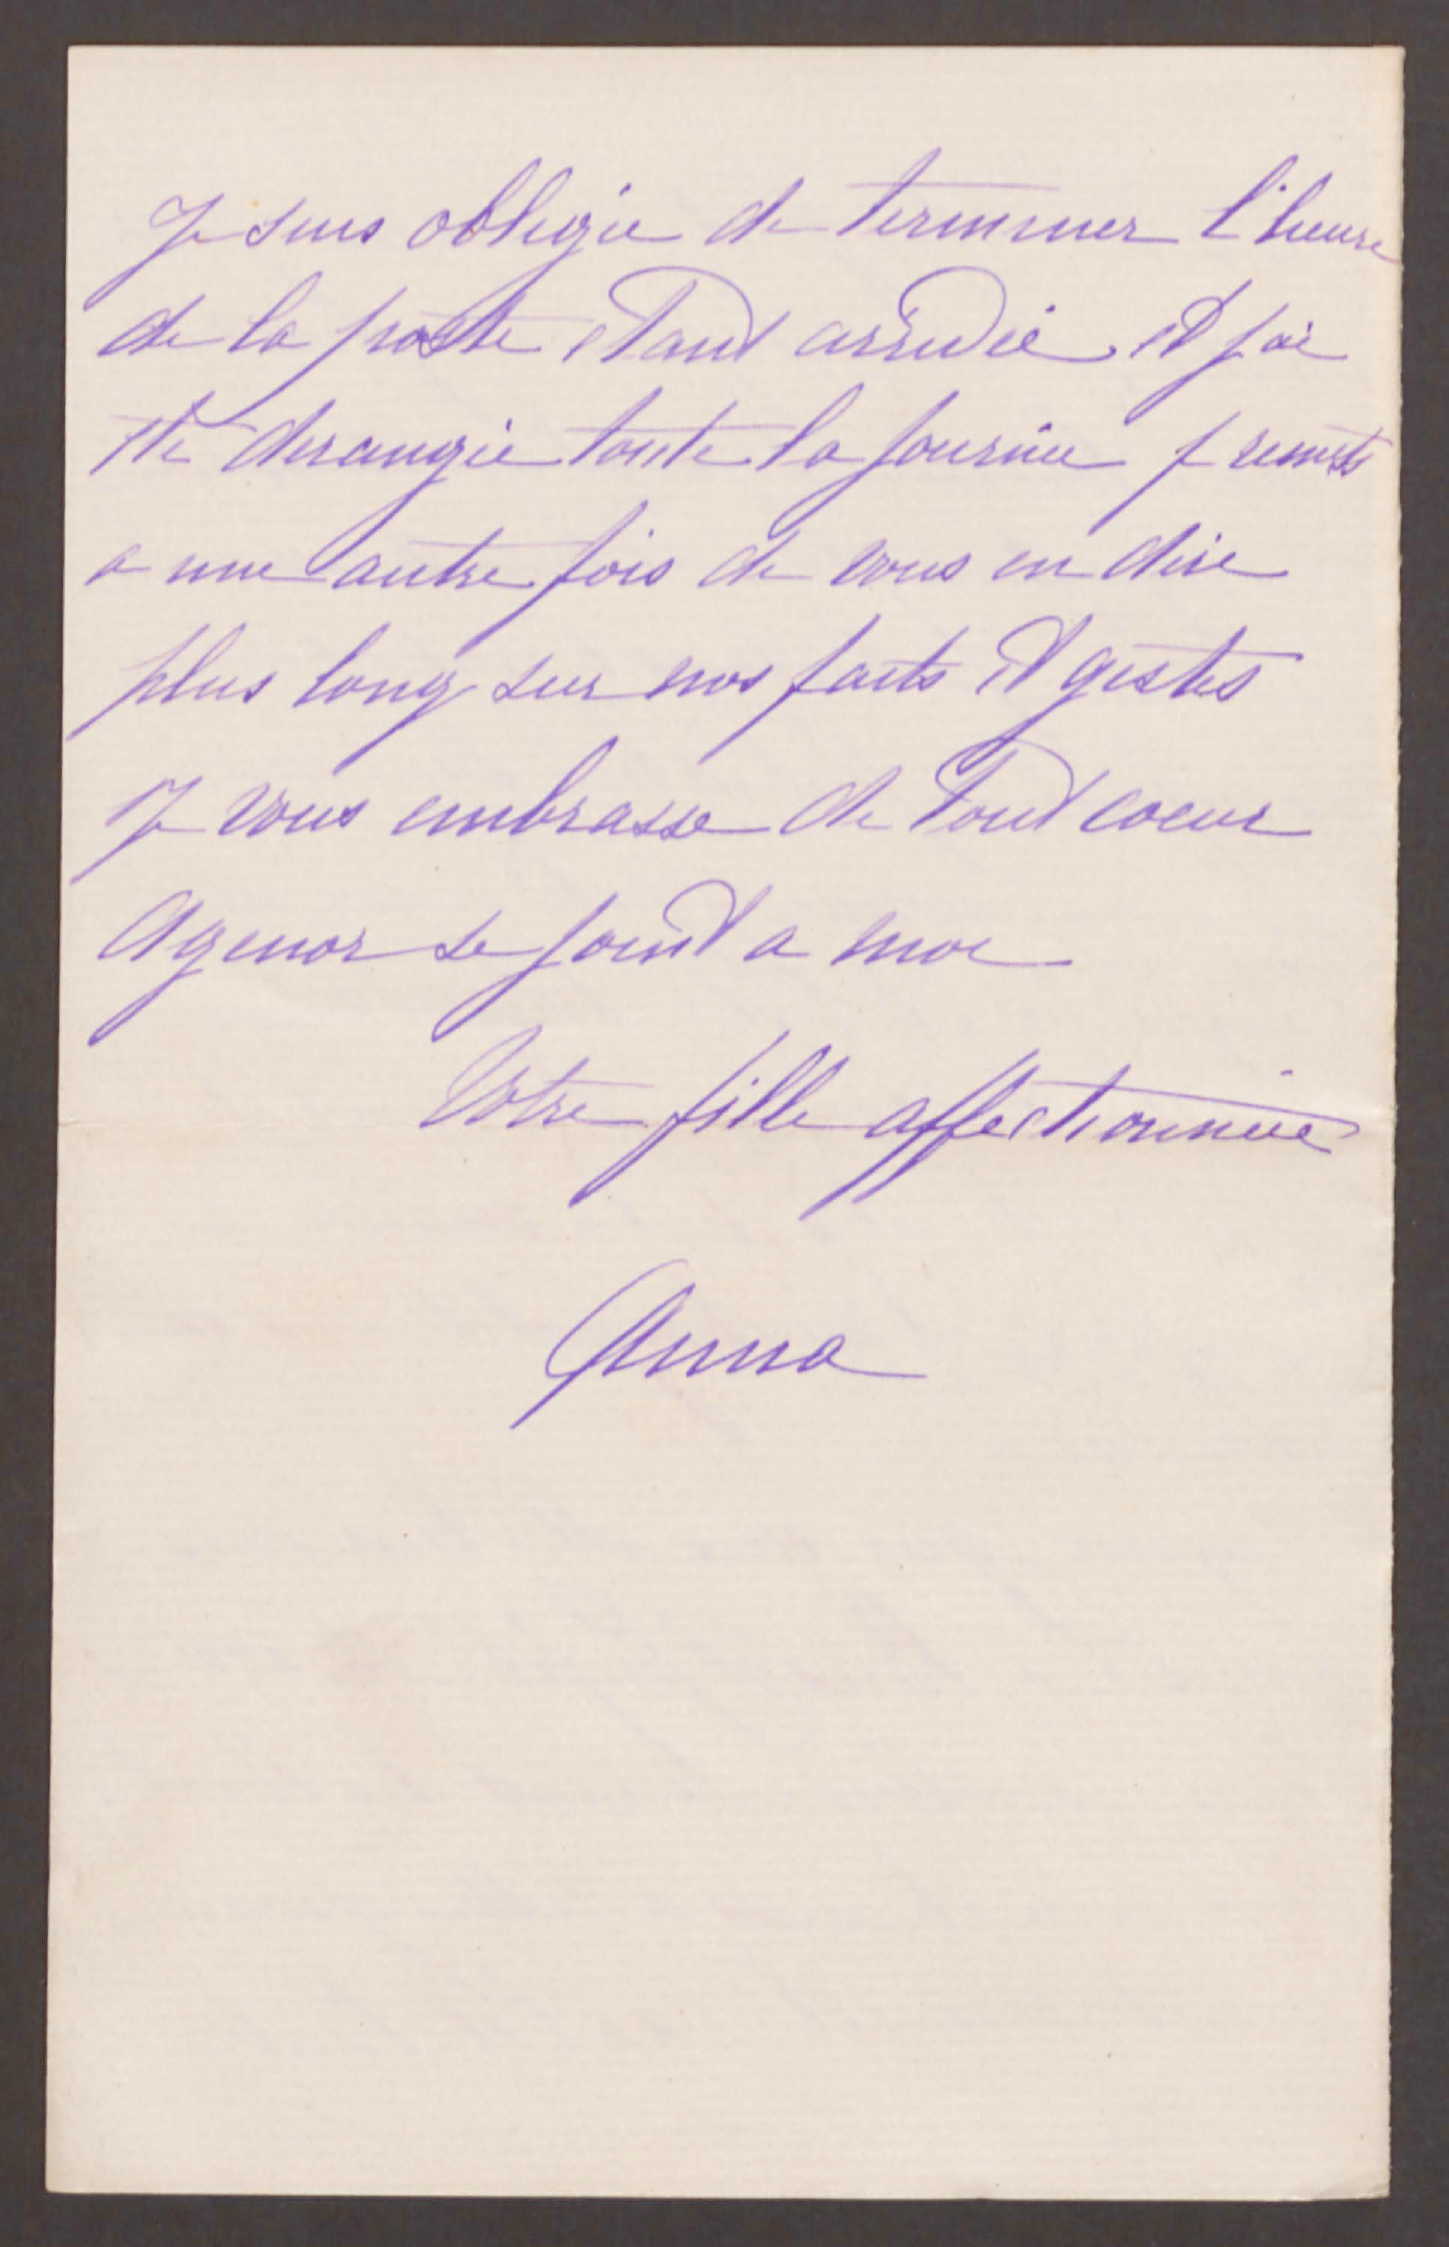 Je suis obligée de terminer l'heure
de la poste etant arrivée, et j'ai
été derangée toute la journée je remets
a une autre fois de vous en dire
plus long sur nos faits et gestes
Je vous embrasse de tout coeur
Agenor se joint a moi
Votre fille affectionnée
Anna